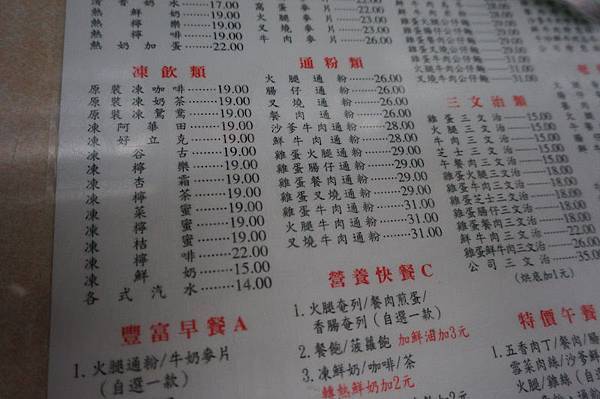 熱鮮奶 19.00
熱檸啡 19.00
熱奶加蛋 22.00
火腿麥片 22.00
叉燒麥片 23.00
牛肉麥片 23.00
雞蛋叉燒公仔麵
雞蛋牛肉公仔麵 31.00
火腿牛肉公仔麵 31.00
叉燒牛肉公仔麵 31.00
凍飲類
原裝凍咖啡 19.00
原裝凍奶茶 19.00
原裝凍鴛鴦 19.00
凍阿華田 19.00
凍好立克 19.00
凍谷古 19.00
凍檸樂 19.00
凍杏霜 19.00
凍檸茶 19.00
凍菜蜜 19.00
凍檸蜜 19.00
凍桔蜜 19.00
凍檸啡 22.00
凍鮮奶 15.00
各式汽水 14.00
通粉類
火腿通粉 26.00
腸仔通粉 26.00
叉燒通粉 26.00
餐肉通粉 26.00
沙爹牛肉通粉 28.00
鮮牛肉通粉 28.00
雞蛋火腿通粉 29.00
雞蛋腸仔通粉 29.00
雞蛋餐肉通粉 29.00
雞蛋叉燒通粉 29.00
雞蛋牛肉通粉 31.00
火腿牛肉通粉 31.00
叉燒牛肉通粉 31.00
三文治類
雞蛋三文治 15.00
火腿三文治 15.00
牛肉三文治 15.00
芝士三文治 15.00
餐肉三文治 15.00
雞蛋火腿三文治 18.00
雞蛋牛肉三文治 18.00
雞蛋芝士三文治 18.00
雞蛋腸仔三文治 18.00
雞蛋餐肉三文治 18.00
鮮牛肉三文治 22.00
雞蛋鮮牛肉三文治 25.00
公司三文治 35.00
(烘底加1元)
豐富早餐A
1. 火腿通粉/牛奶麥片
(自選一款)
營養快餐C
1. 火腿奄列/餐肉煎蛋/
香腸奄列(自選一款)
2. 餐飽/菠蘿飽 加鮮油加3元
3. 凍鮮奶/咖啡/茶
轉熱鮮奶加2元
特價午餐
1. 五香肉丁/餐肉/腸
雪菜肉絲/沙爹鮮
火腿/雞絲(自選